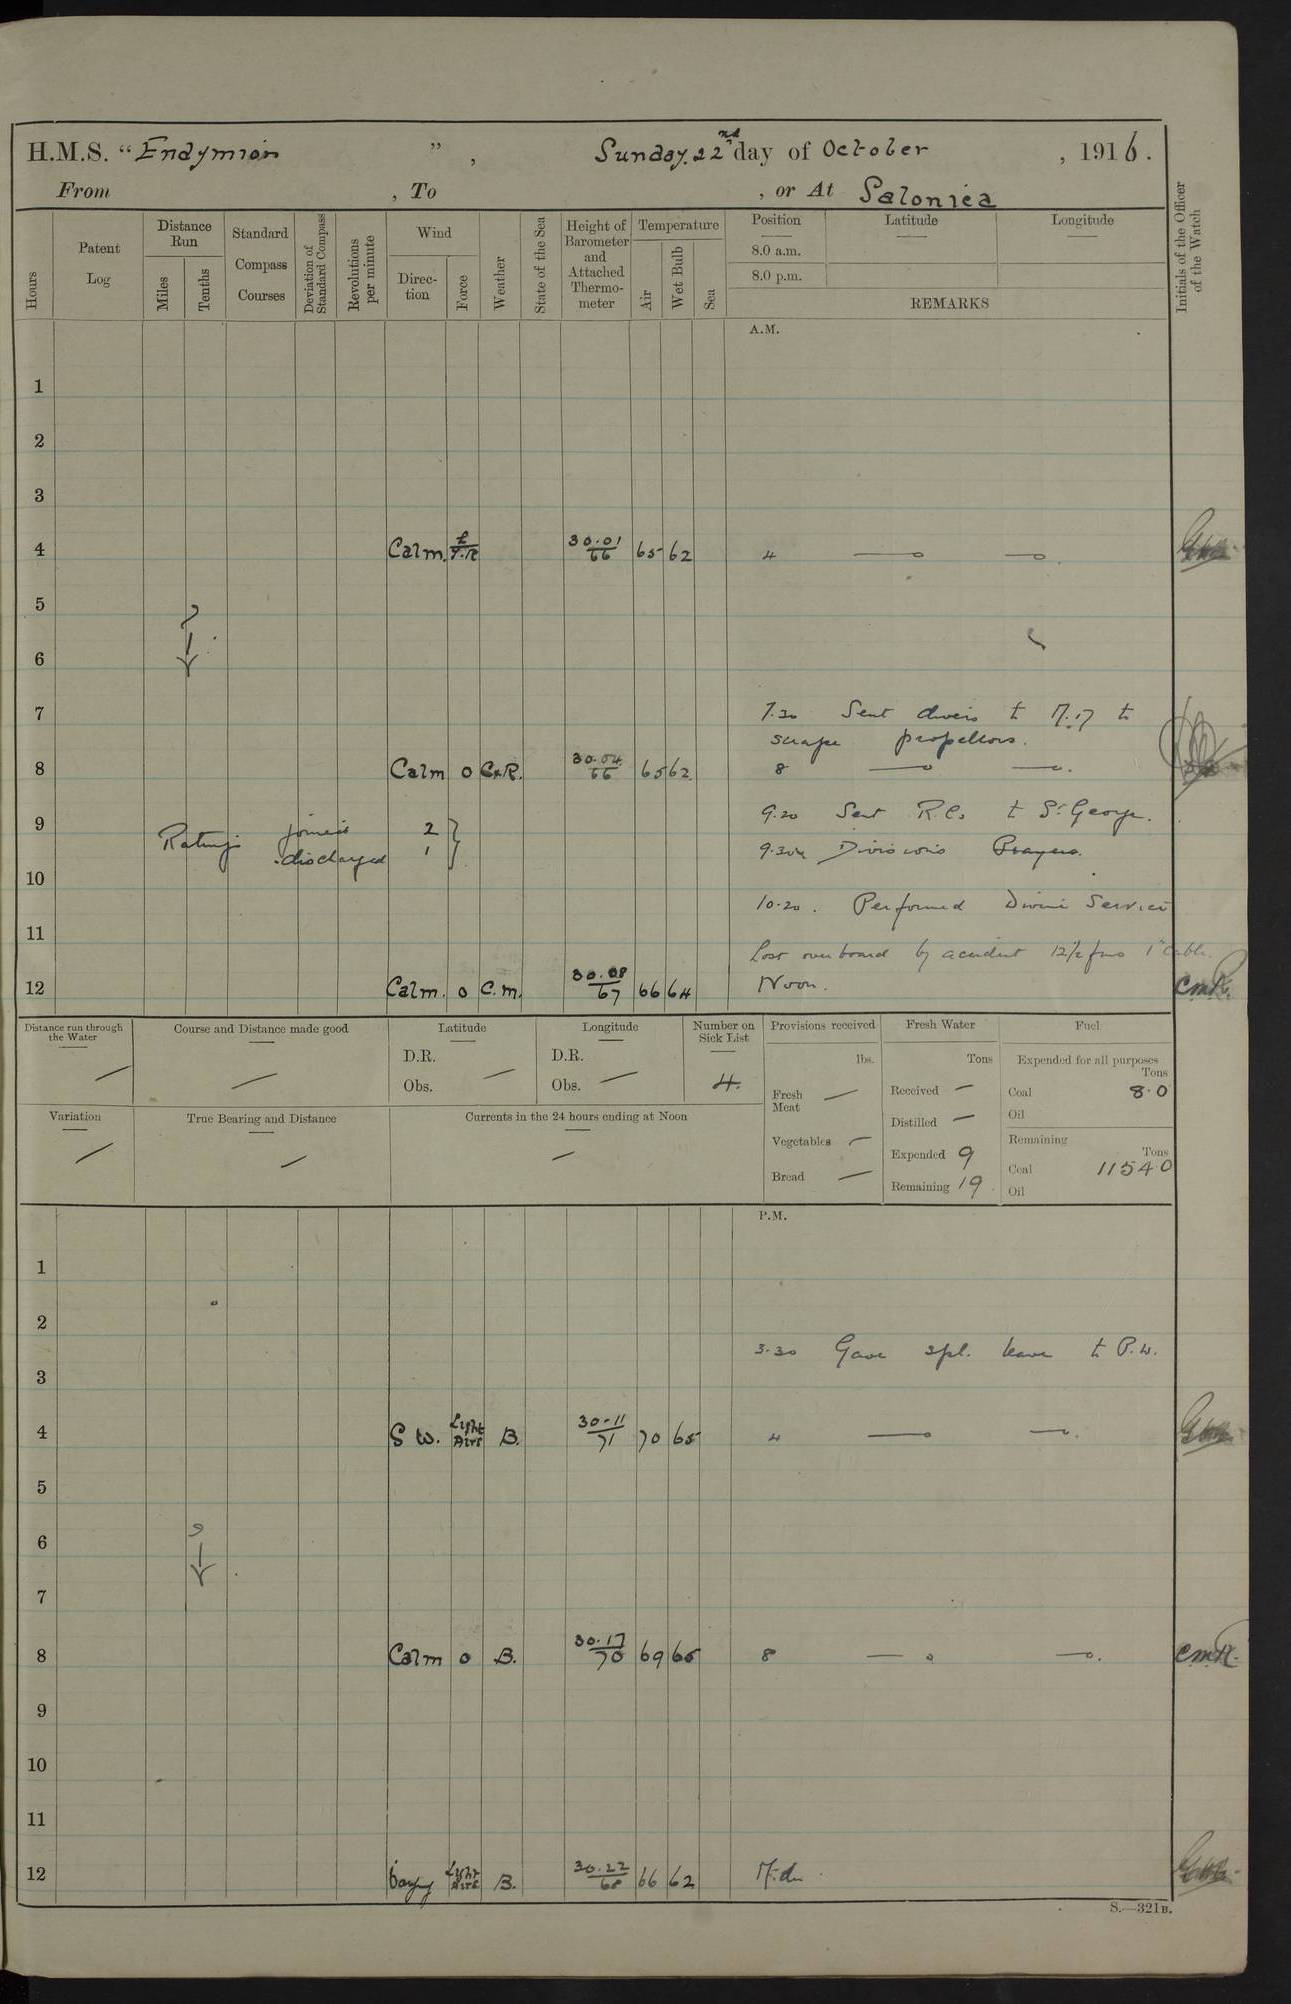 H.M.S. "Endymion", Sunday 22nd day of October, 1916.
From , To , or At Salonica
Hours
Patent Log
Distance Run
Miles
Tenths
Standard Compass Courses
Deviation of Standard Compass
Revolutions per minute
Wind
Direction
Force
Weather
State of the Sea
Height of Barometer and Attached Thermometer
Temperature
Air
Wet Bulb
Sea
Position
8.0 a.m.
8.0 p.m.
Latitude
Longitude
REMARKS
Initials of the Officer of the Watch
A.M.
1
2
3
4 Calm 30.01/66 65 62 4
5
6
7 7.30 Sent divers to M.17 to
scrape propellors.
8 Calm 0 30.04/66 65 62 8
9 9.20 Sent R.Cs to St George.
Ratings joined 2
discharged 1
9.30 Divisions Prayers.
10
10.20. Performed Divine Service
11
Lost overboard by accident 12½ fms 1" Cable.
12 Calm. 0 C.m. 30.08/67 66 64 Noon. CmR.
Distance run through the Water
Course and Distance made good
Latitude
D.R.
Obs.
Longitude
D.R.
Obs.
Number on Sick List
4.
Variation
True Bearing and Distance
Currents in the 24 hours ending at Noon
Provisions received
lbs.
Fresh Meat
Vegetables
Bread
Fresh Water
Tons
Received
Distilled
Expended 9
Remaining 19
Fuel
Expended for all purposes
Tons
Coal 8.0
Oil
Remaining
Tons
Coal 1154.0
Oil
P.M.
1
2
3.30 Gave spl. leave to P.W.
3
4 S W. Light Airs B. 30.11/71 70 65 4
5
6
7
8 Calm 0 B. 30.17/70 69 65 8 CmR.
9
10
11
12 Light Airs B. 30.22/68 66 62 Mid
S.—321B.